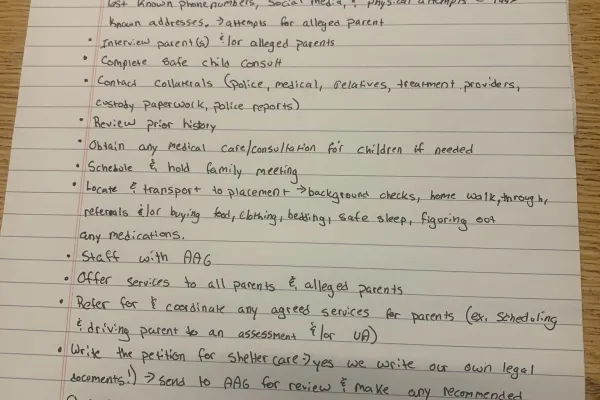 last known phone numbers, social media, & physical attempts - last
known addresses. → attempts for alleged parent
• Interview parent(s) &/or alleged parents
• Complete safe child consult
• Contact collaterals (police, medical, relatives, treatment providers,
custody paperwork, police reports)
• Review prior history
• Obtain any medical care/consultation for children if needed
• Schedule & hold family meeting
• Locate & transport to placement → background checks, home walk, through,
referrals &/or buying food, clothing, bedding, safe sleep, figuring out
any medications.
• Staff with AAG
• Offer services to all parents & alleged parents
• Refer for & coordinate any agreed services for parents (ex. Scheduling
& driving parent to an assessment &/or UA)
• Write the petition for shelter care → yes we write our own legal
documents!) → send to AAG for review & make any recommended